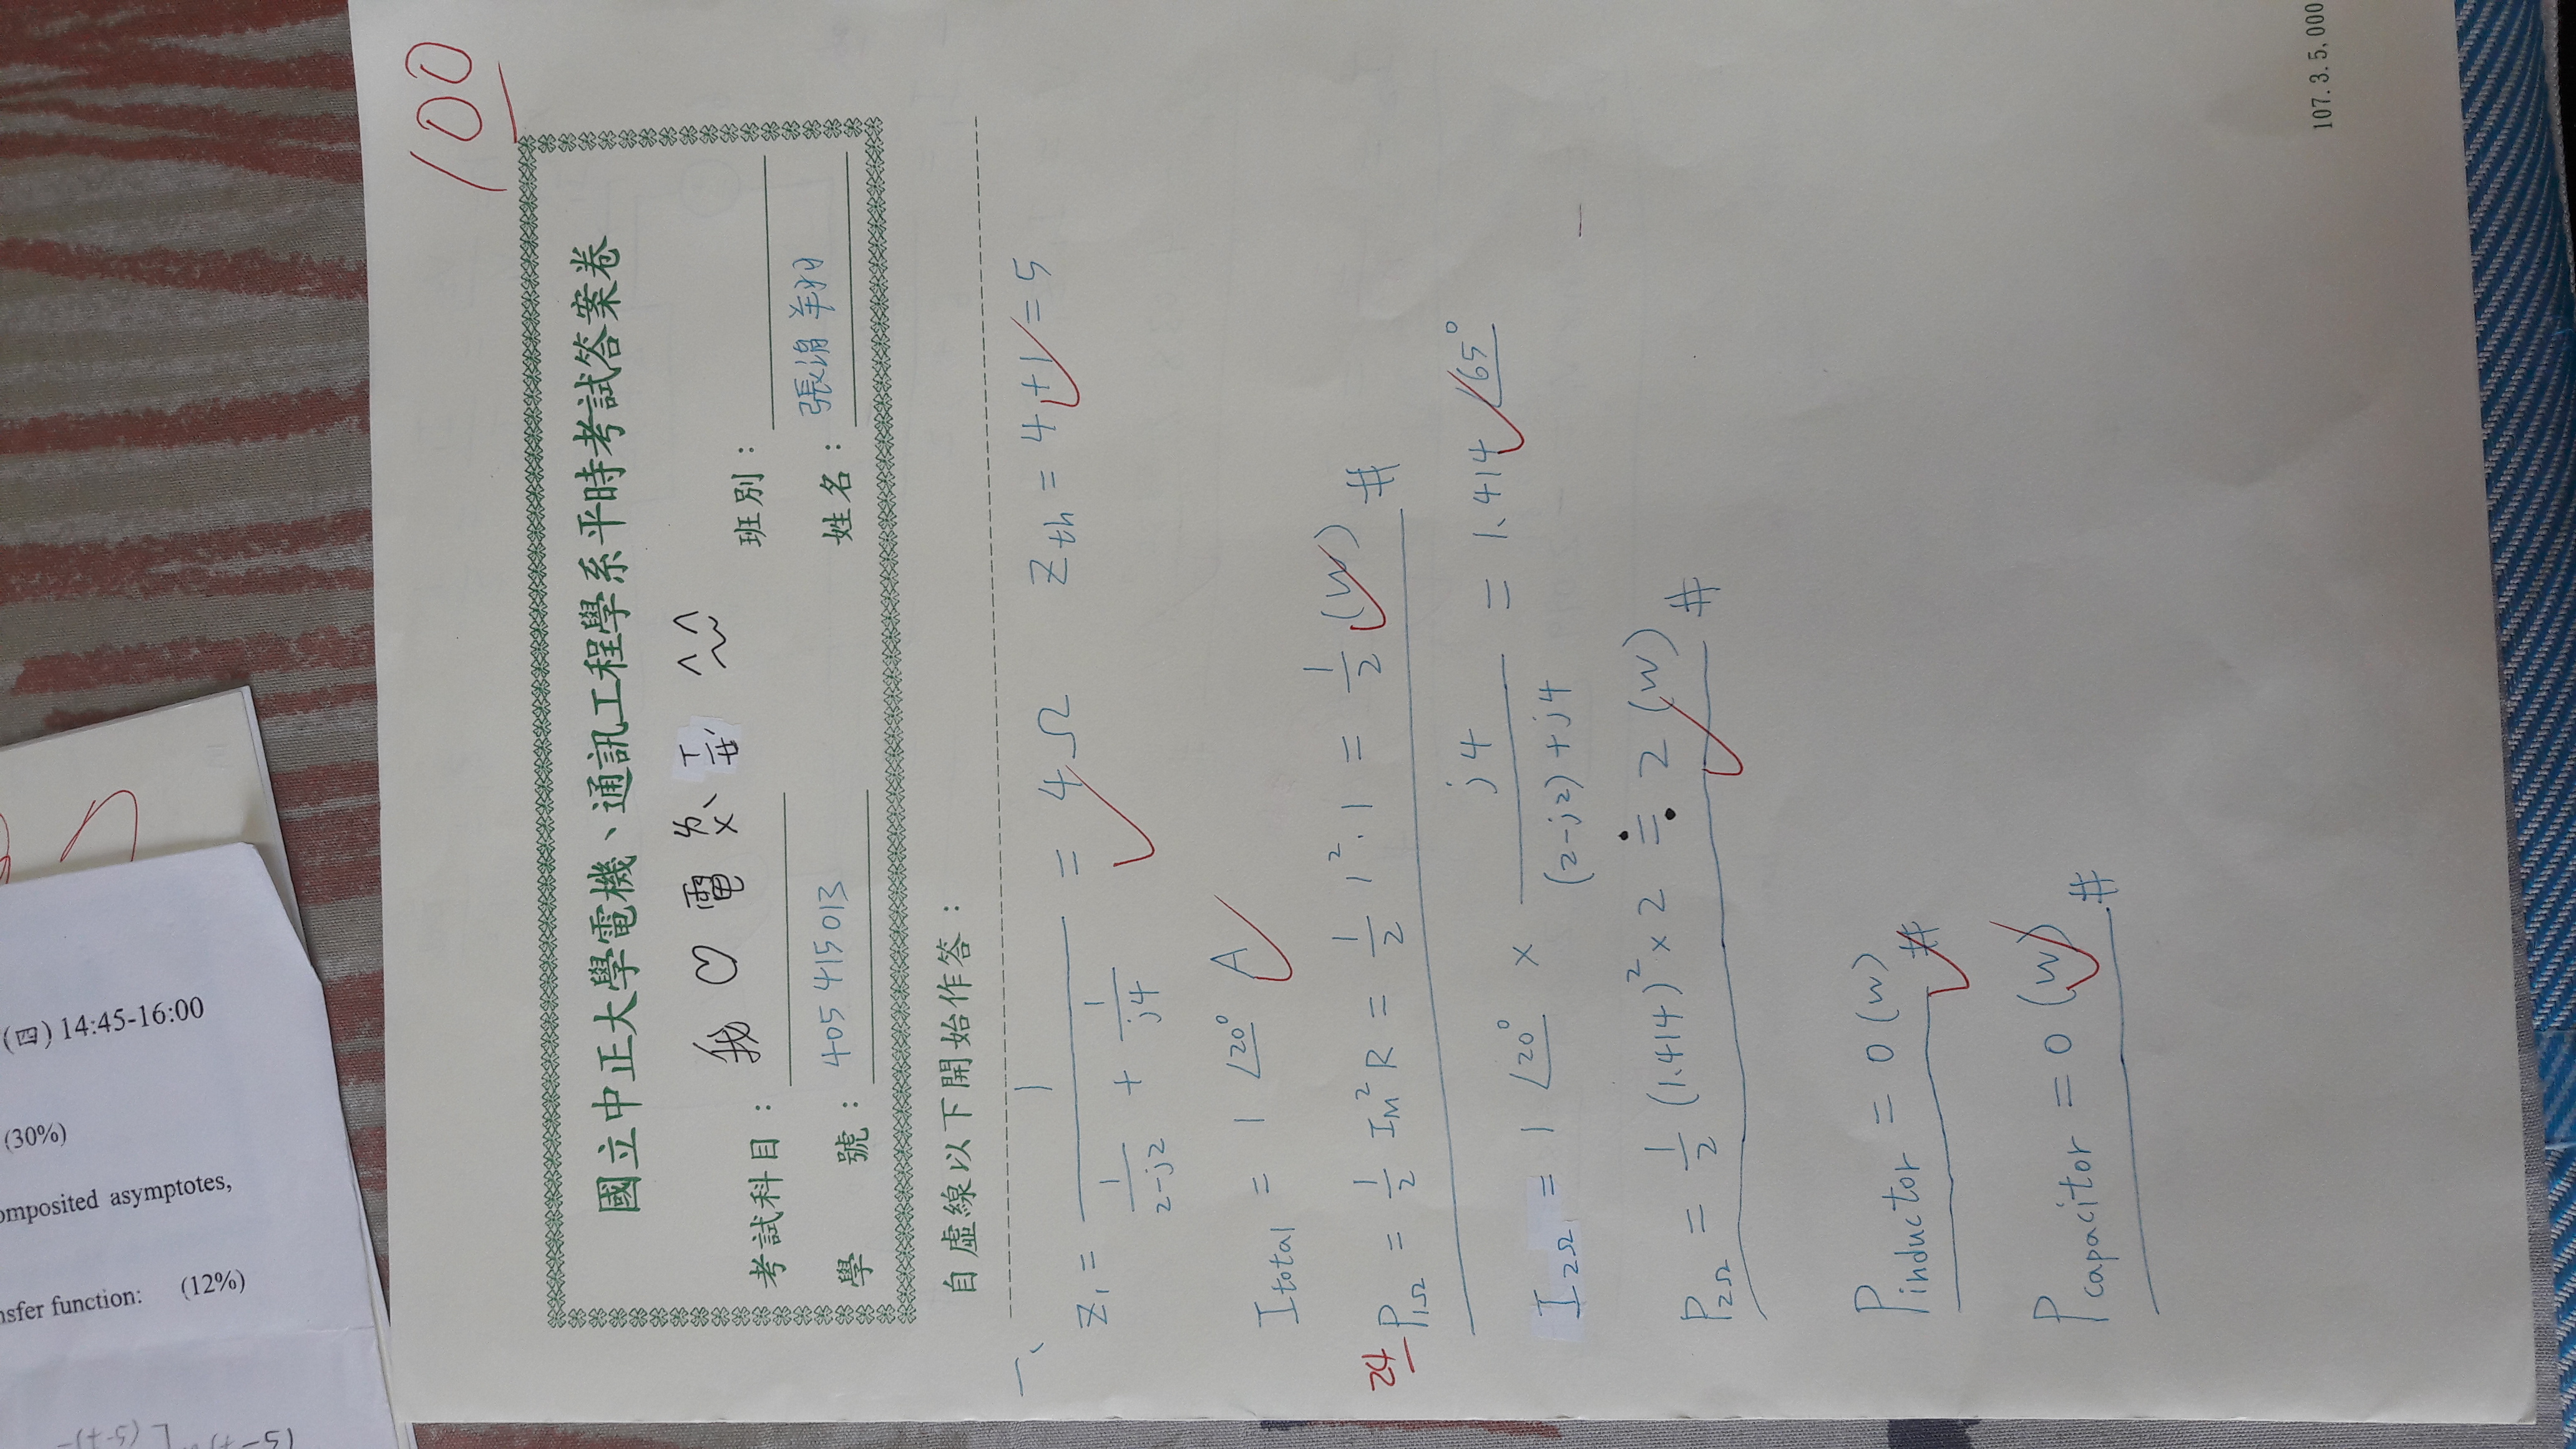 (四) 14:45-16:00
(30%)
omposited asymptotes,
nsfer function: (12%)
-(t-5)]u(t-5)
100
國立中正大學電機、通訊工程學系平時考試答案卷
考試科目: 我 ♡ 電 ㄌㄨˋ ㄒㄧㄝˋ
班別:
學 號: 405415013
姓名: 張涓翔
自虛線以下開始作答:
一、
Z₁ = 1 / (1/(2-j2) + 1/(j4)) = 4Ω Zth = 4+1 = 5
Itotal = 1 ∠20° A
24
P1Ω = 1/2 IM² R = 1/2 1²·1 = 1/2 (W) #
I2Ω = 1 ∠20° × j4 / ((2-j2)+j4) = 1.414 ∠65°
P2Ω = 1/2 (1.414)² × 2 ≒ 2 (W) #
Pinductor = 0 (W) #
Pcapacitor = 0 (W) #
107.3.5,000